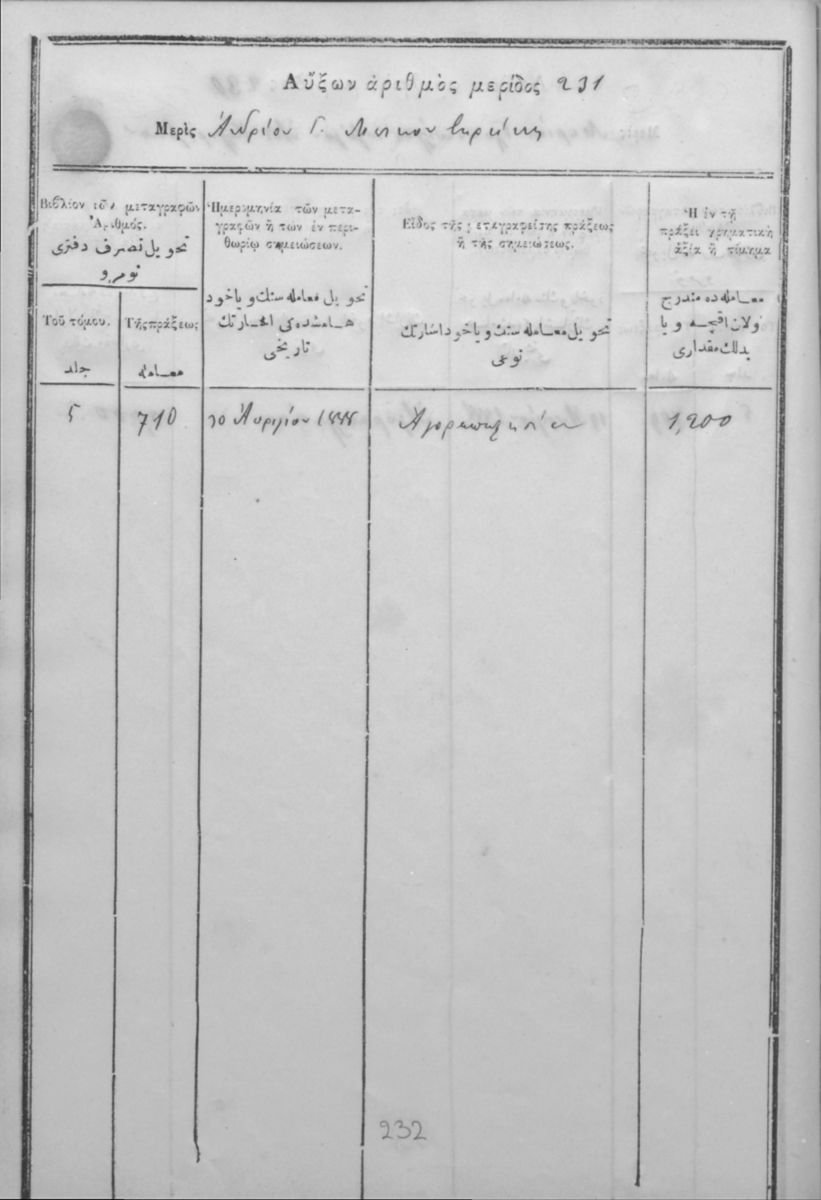 Αὔξων ἀριθμὸς μερίδος 231
Μερὶς Ἀνδρέου Γ.
Βιβλίον τῶν μεταγραφῶν
Ἀριθμός.
تحويل تصرف دفترى
نومرو
Τοῦ τόμου.
جلد
Τῆς πράξεως
معامله
Ἡμερομηνία τῶν μετα-
γραφῶν ἢ τῶν ἐν περι-
θωρίῳ σημειώσεων.
تحويل معامله سنك ويا خود
هامشده كى اخبارتك
تاريخى
Εἶδος τῆς μεταγραφείσης πράξεως
ἢ τῆς σημειώσεως.
تحويل معامله سنك ويا خود اشارتك
نوعى
Ἡ ἐν τῇ
πράξει χρηματικὴ
ἀξία ἢ τίμημα
معامله ده مندرج
اولان اقچه ويا
بدلك مقدارى
5 710 10 Ἀπριλίου 1888 Ἀγοραπωλησία 1,200
232